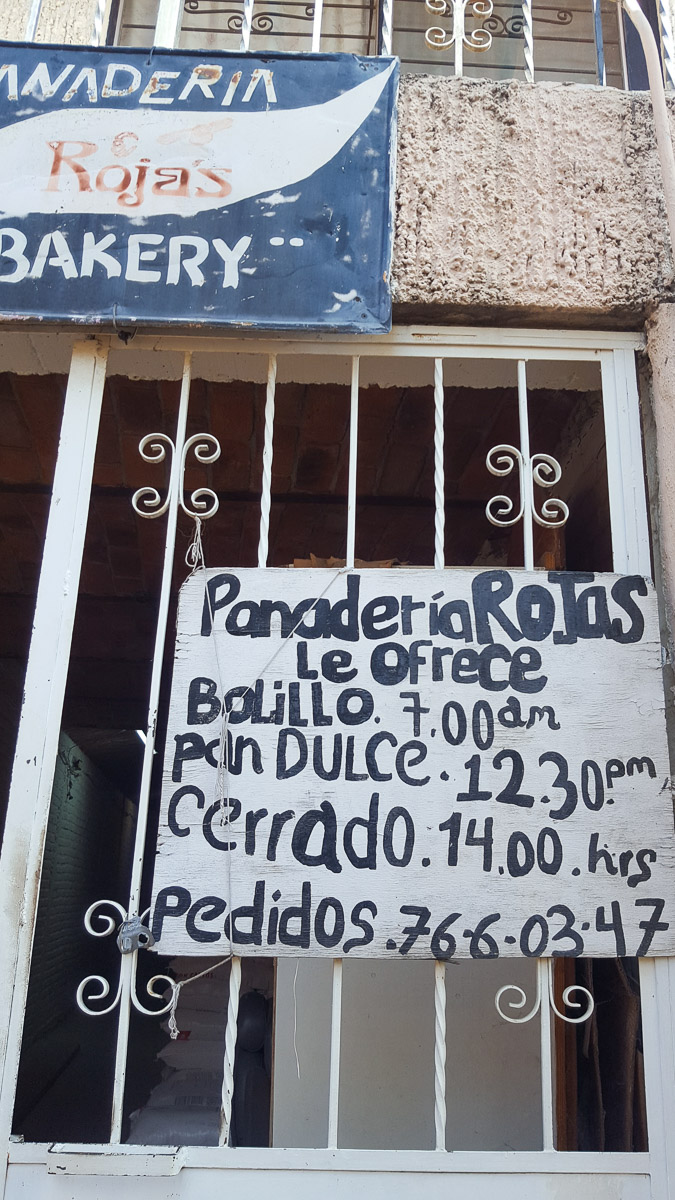 ANADERIA
Roja's
BAKERY"
Panadería ROJAS
Le OFrece
BOLiLLO. 7.00 am
pan DULCe. 12.30.pm
Cerrado. 14.00.hrs
Pedidos. 76-6-03-47